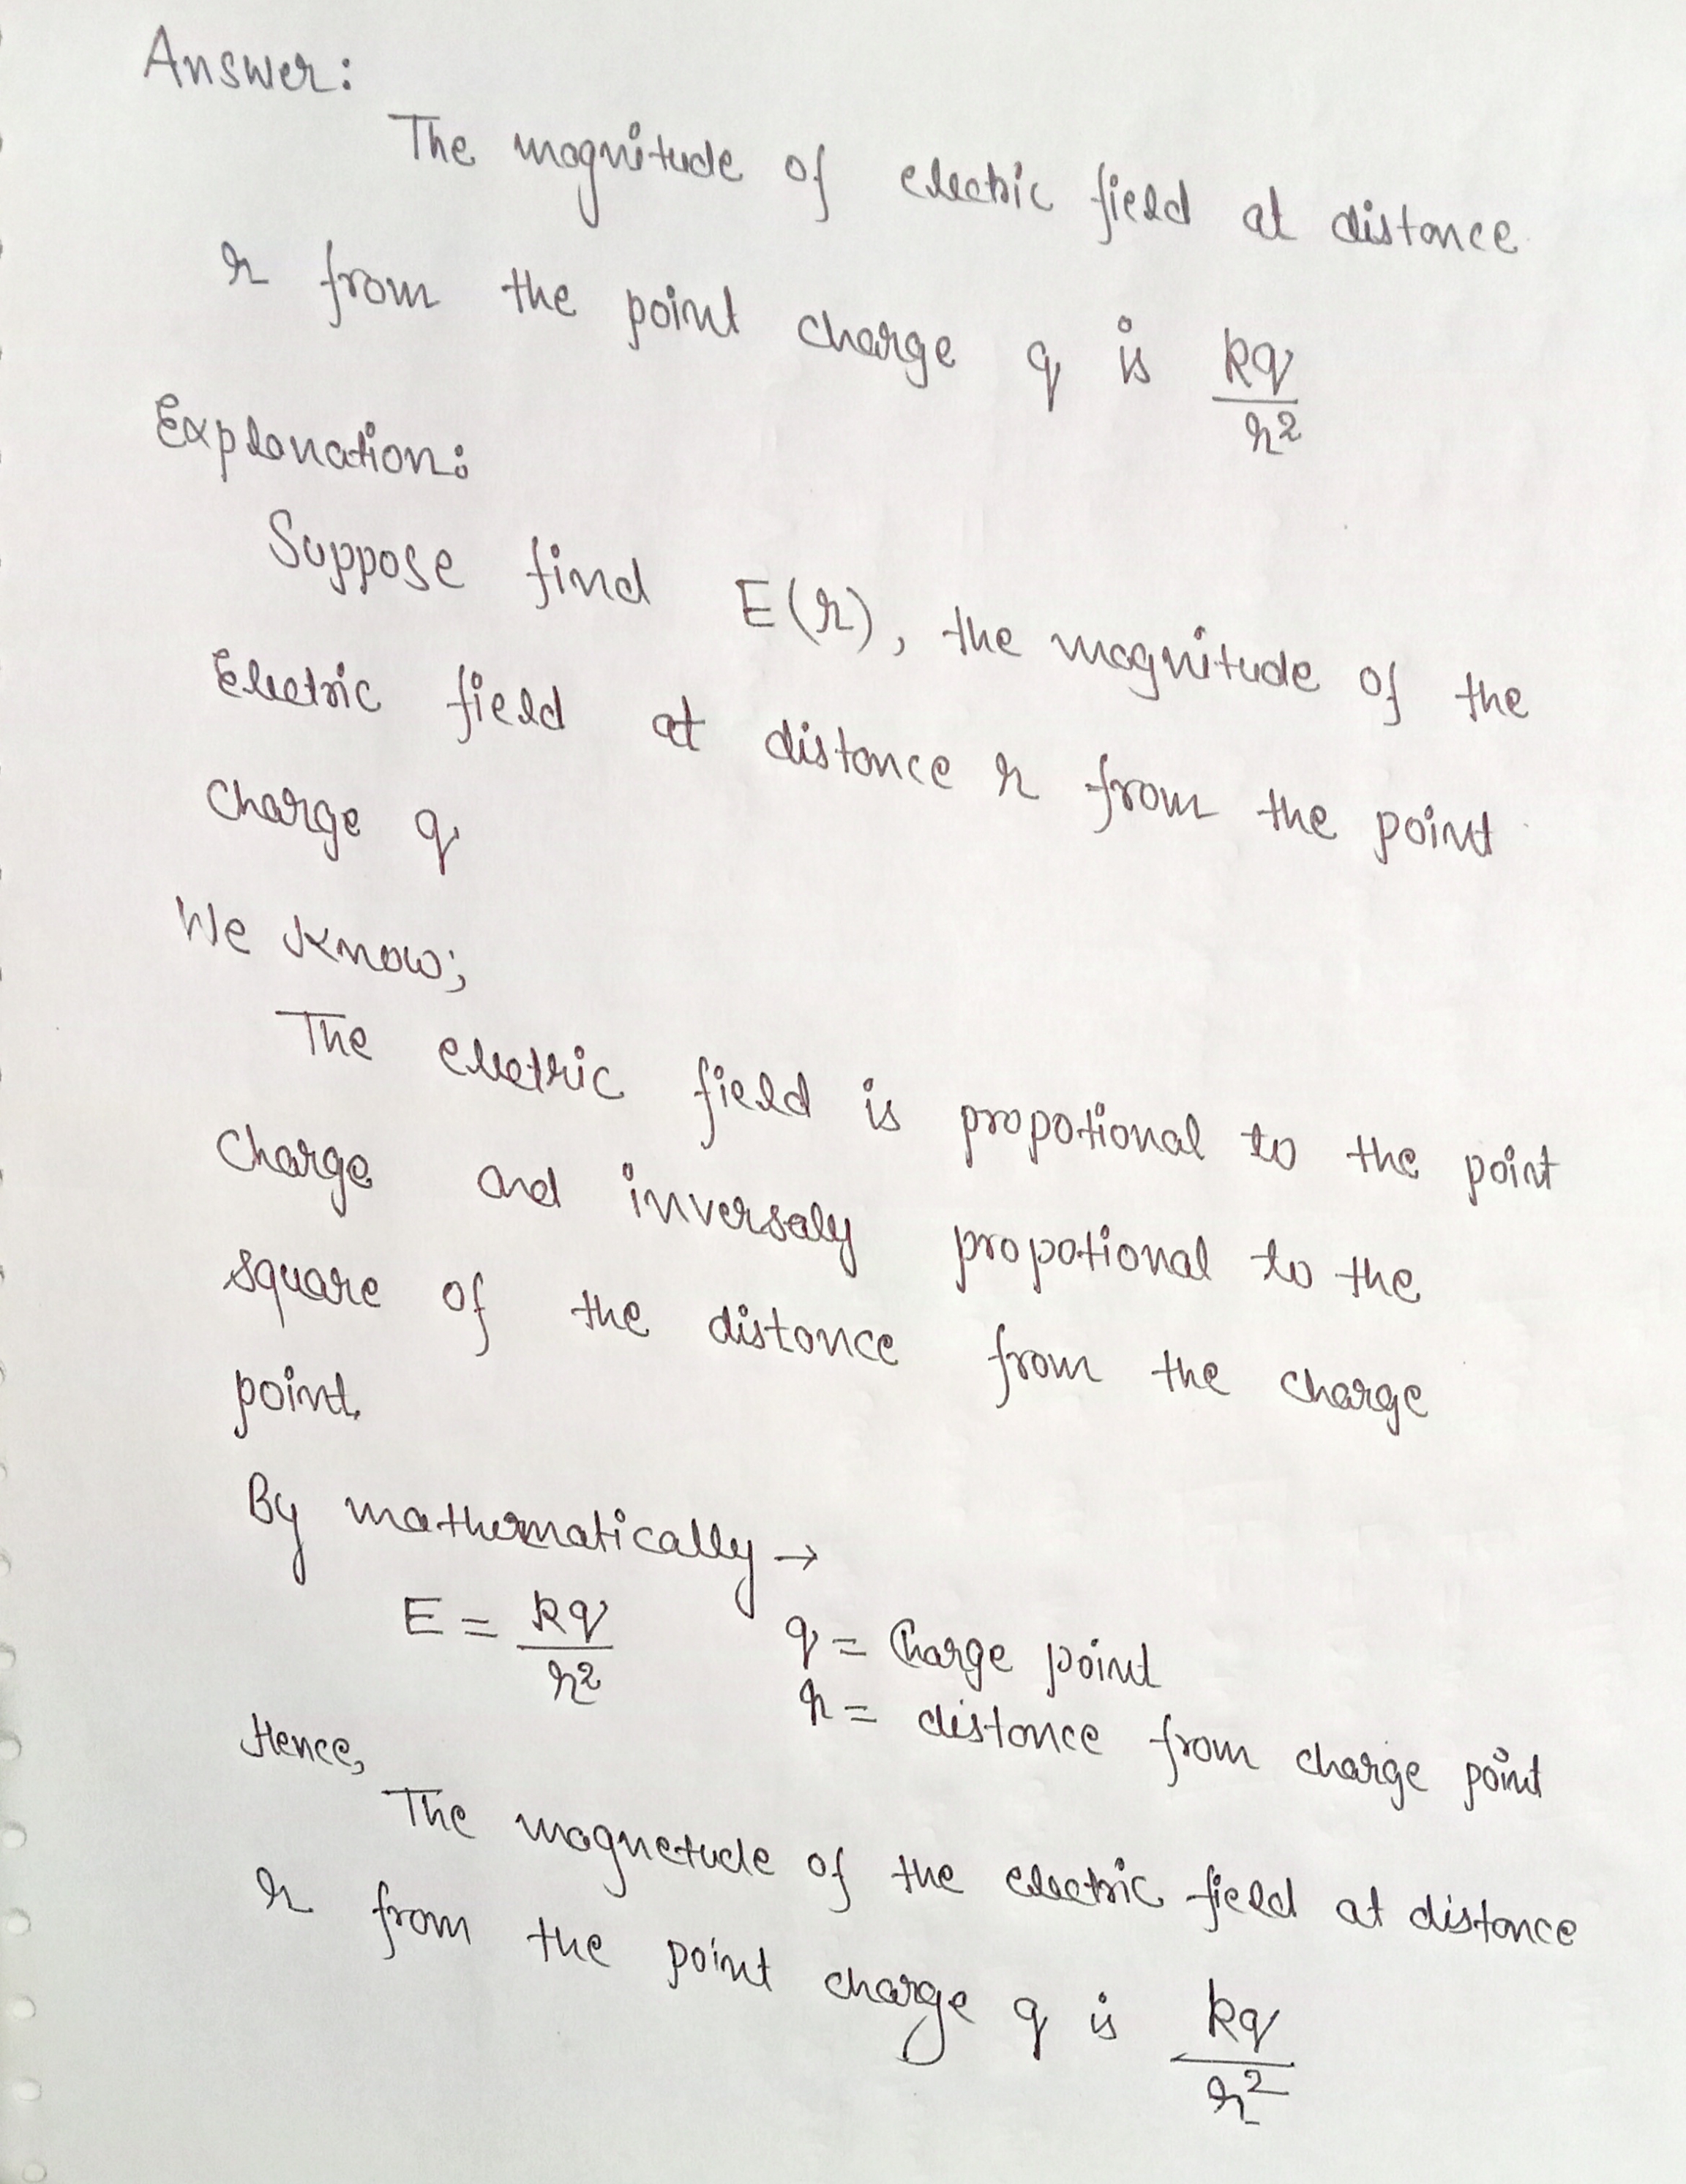 Answer:
The magnitude of electric field at distance
r from the point charge q is kq/r²
Explanation:
Suppose find E(r), the magnitude of the
Electric field at distance r from the point
charge q
We know;
The electric field is propotional to the point
charge and inversaly propotional to the
square of the distance from the charge
point.
By mathematically →
E = kq/r² q = Charge point
r = distance from charge point
Hence,
The magnetude of the electric field at distance
r from the point charge q is kq/r²